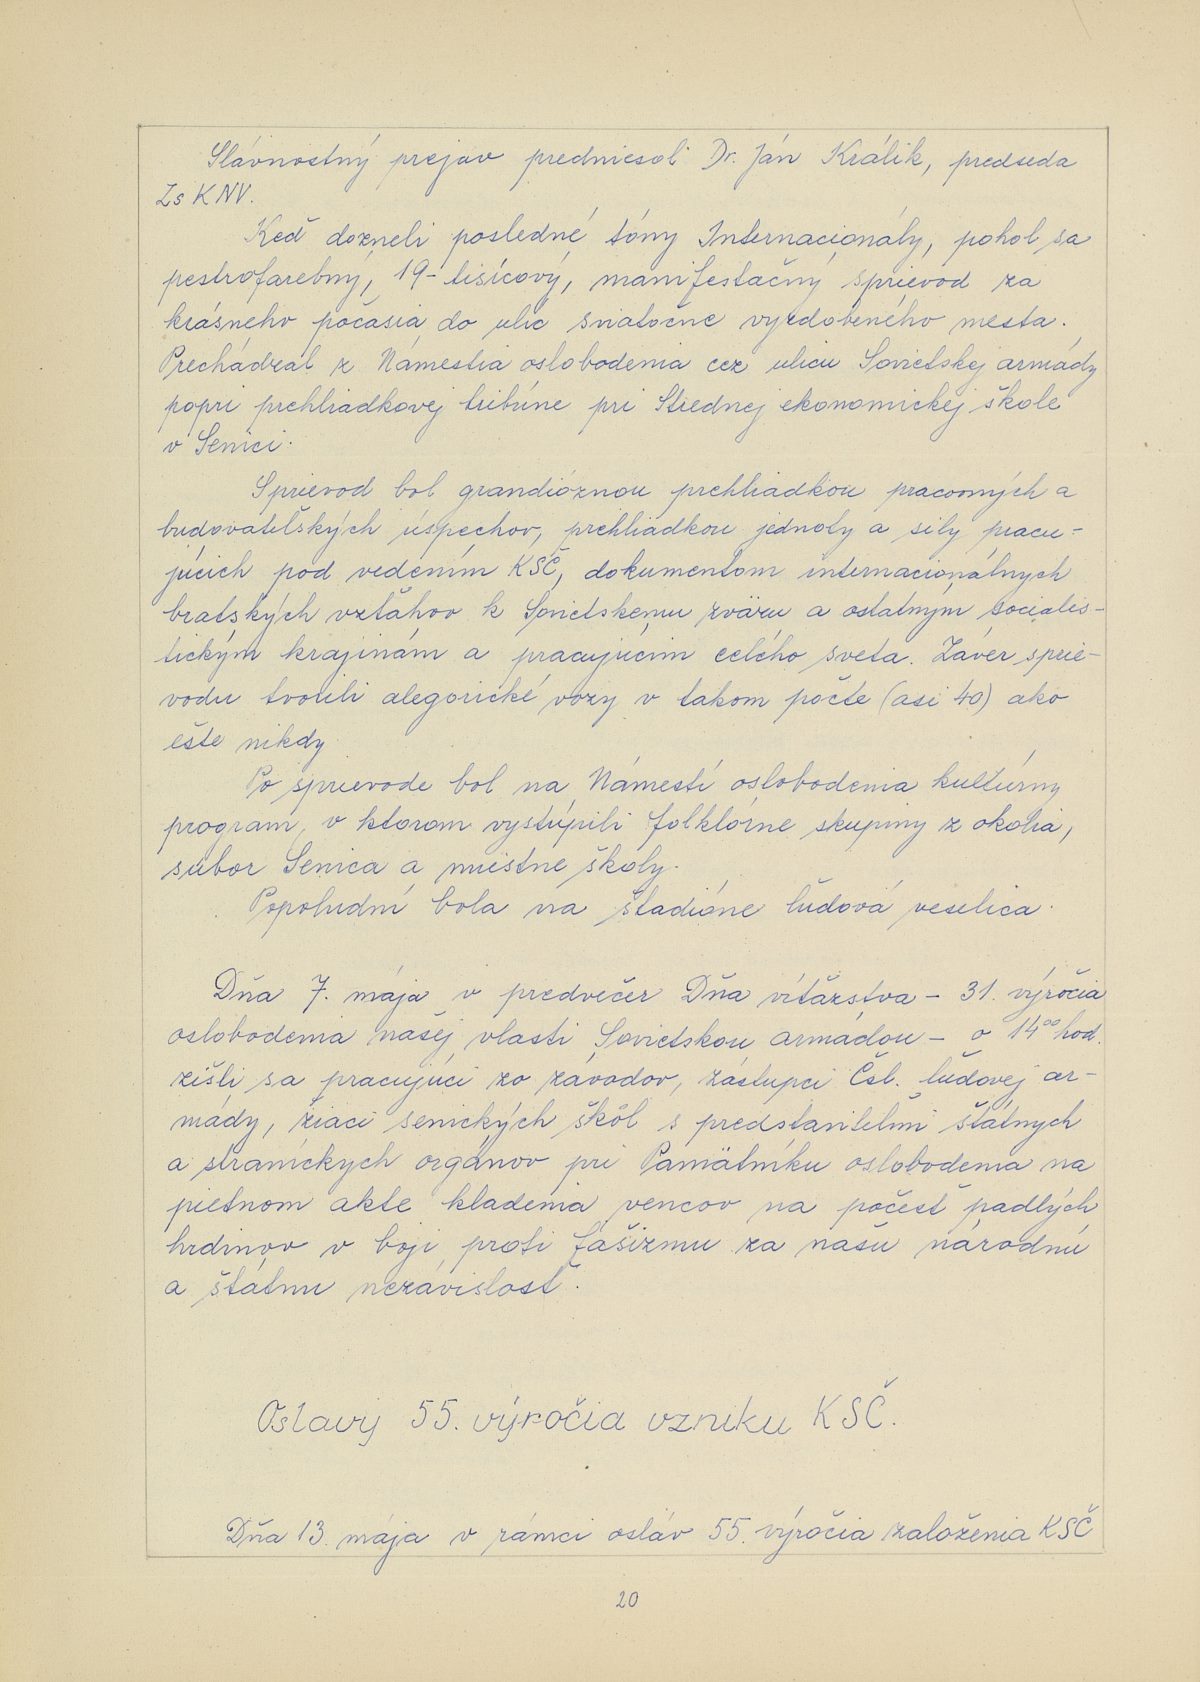 Slávnostný prejav predniesol Dr. Ján Králik, predseda
Zs KNV.
Keď dozneli posledné tóny Internacionály, pohol sa
pestrofarebný, 19-tisícový, manifestačný sprievod za
krásneho počasia do ulíc sviatočne vyzdobeného mesta.
Prechádzal z Námestia oslobodenia cez ulicu Sovietskej armády
popri prehliadkovej tribúne pri Strednej ekonomickej škole
v Senici.
Sprievod bol grandióznou prehliadkou pracovných a
budovateľských úspechov, prehliadkou jednoty a sily pracu-
júcich pod vedením KSČ, dokumentom internacionálnych
bratských vzťahov k Sovietskemu zväzu a ostatným socialis-
tickým krajinám a pracujúcim celého sveta. Záver sprie-
vodu tvorili alegorické vozy v takom počte (asi 40) ako
ešte nikdy.
Po sprievode bol na Námestí oslobodenia kultúrny
program, v ktorom vystúpili folklórne skupiny z okolia,
súbor Senica a miestne školy.
Popoludní bola na štadióne ľudová veselica.
Dňa 7. mája v predvečer Dňa víťazstva - 31. výročia
oslobodenia našej vlasti Sovietskou armádou - o 14⁰⁰ hod.
zišli sa pracujúci zo závodov, zástupci Čsl. ľudovej ar-
mády, žiaci senických škôl s predstaviteľmi štátnych
a straníckych orgánov pri Pamätníku oslobodenia na
pietnom akte kladenia vencov na počesť padlých
hrdinov v boji proti fašizmu za našu národnú
a štátnu nezávislosť.
Oslavy 55. výročia vzniku KSČ.
Dňa 13. mája v rámci osláv 55. výročia založenia KSČ
20